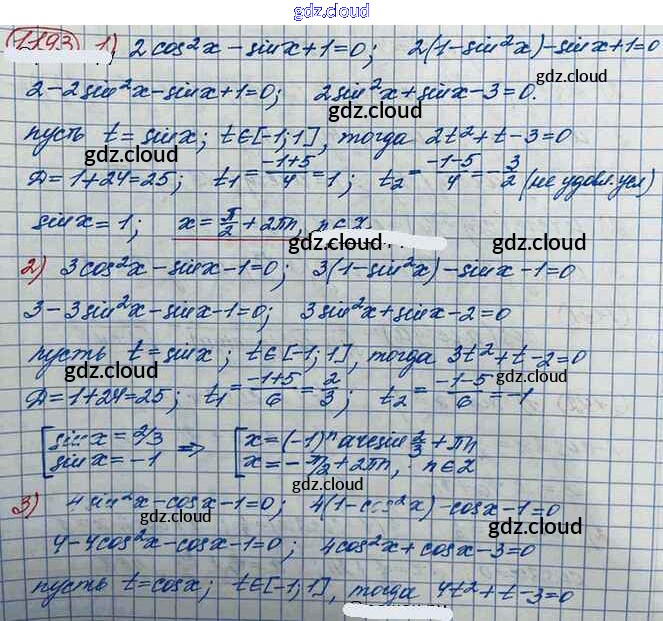 gdz.cloud
1193 1) 2cos²x - sinx + 1 = 0; 2(1 - sin²x) - sinx + 1 = 0
gdz.cloud gdz.cloud
2 - 2sin²x - sinx + 1 = 0; 2sin²x + sinx - 3 = 0.
gdz.cloud
пусть t = sinx; t ∈ [-1; 1], тогда 2t² + t - 3 = 0
gdz.cloud gdz.cloud
D = 1 + 24 = 25; t₁ = (-1+5)/4 = 1; t₂ = (-1-5)/4 = -3/2 (не удовл. усл)
gdz.cloud
sinx = 1; x = π/2 + 2πn, n ∈ Z
gdz.cloud
2) 3cos²x - sinx - 1 = 0; 3(1 - sin²x) - sinx - 1 = 0
gdz.cloud
3 - 3sin²x - sinx - 1 = 0; 3sin²x + sinx - 2 = 0
пусть t = sinx; t ∈ [-1; 1], тогда 3t² + t - 2 = 0
gdz.cloud gdz.cloud
D = 1 + 24 = 25; t₁ = (-1+5)/6 = 2/3; t₂ = (-1-5)/6 = -1
[ sinx = 2/3 ⇒ [ x = (-1)ⁿ arcsin 2/3 + πn
sinx = -1 x = -π/2 + 2πn, n ∈ Z
gdz.cloud
3) 4sin²x - cosx - 1 = 0; 4(1 - cos²x) - cosx - 1 = 0
gdz.cloud gdz.cloud
4 - 4cos²x - cosx - 1 = 0; 4cos²x + cosx - 3 = 0
gdz.cloud
пусть t = cosx; t ∈ [-1; 1], тогда 4t² + t - 3 = 0
gdz.cloud